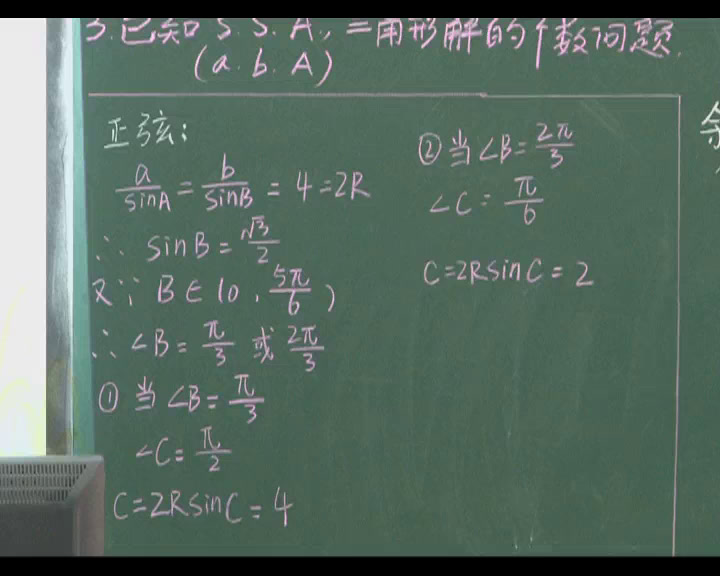 3.已知 S.S.A.,三角形解的个数问题.
(a.b.A)
正弦:
a/sinA = b/sinB = 4 = 2R
∴ sinB = √3/2
又∵ B∈(0, 5π/6)
∴ ∠B = π/3 或 2π/3
① 当∠B = π/3
∠C = π/2
C = 2RsinC = 4
② 当∠B = 2π/3
∠C = π/6
C = 2RsinC = 2